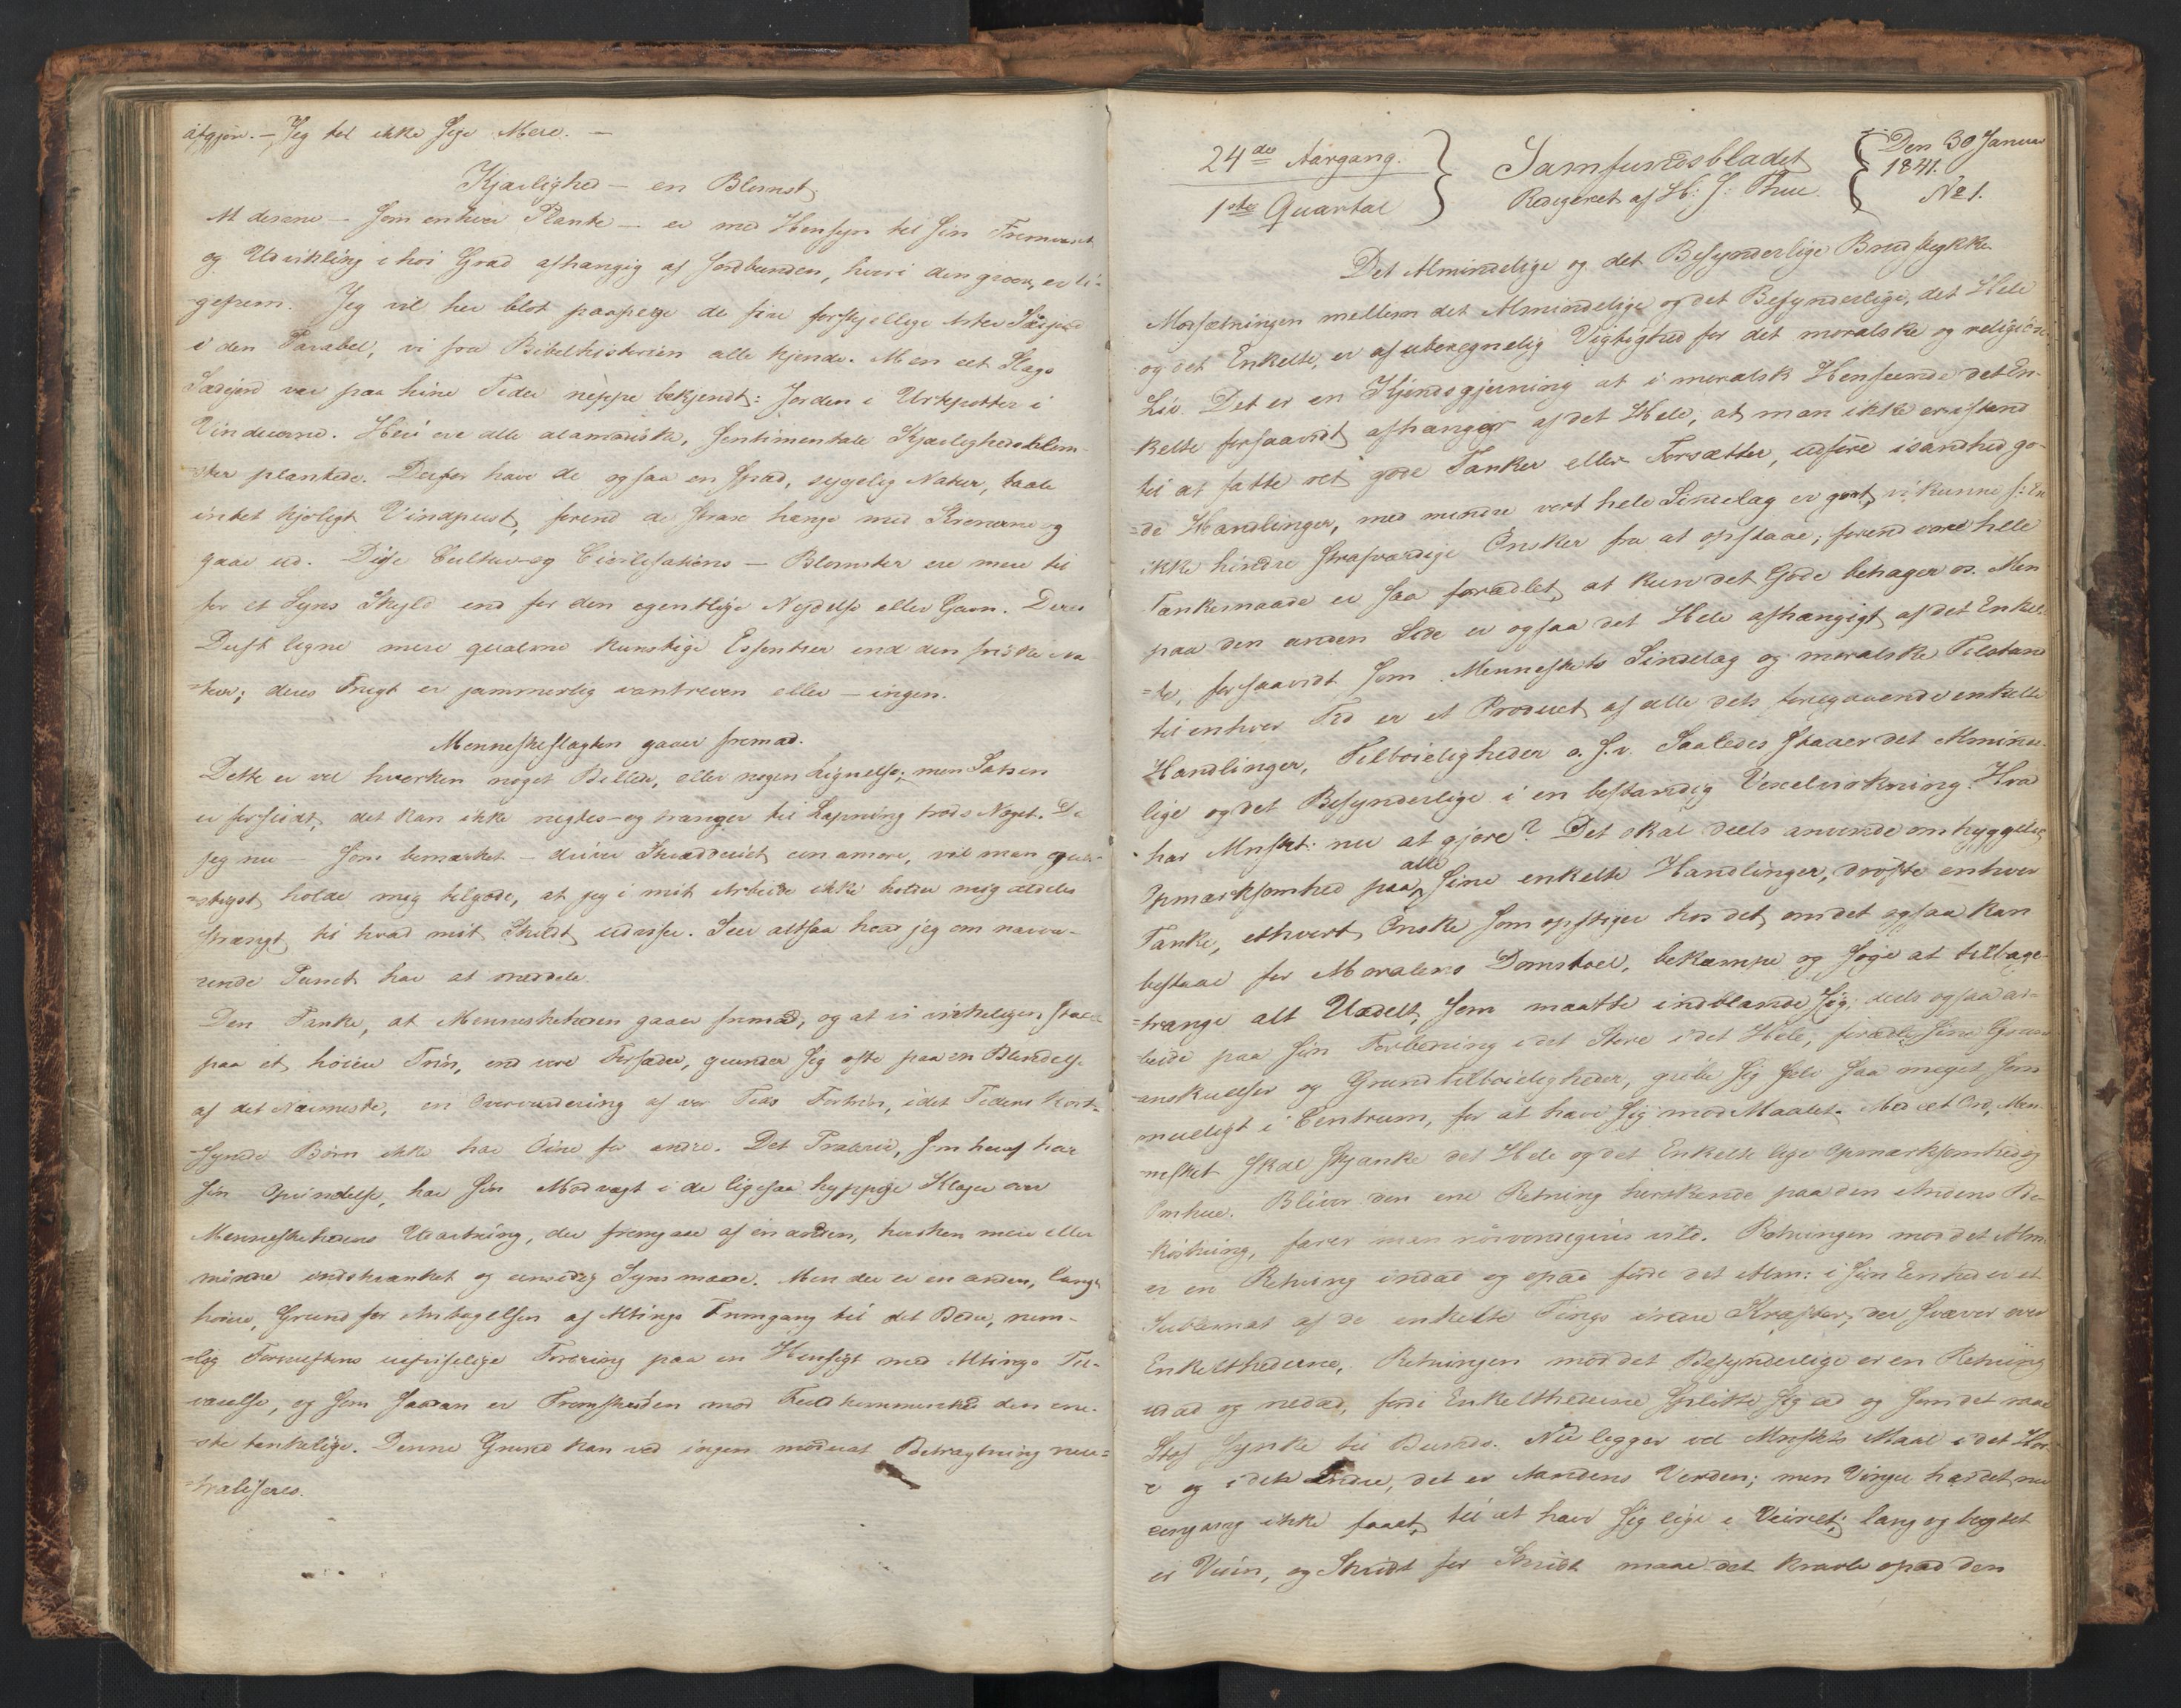 afgjøre. — Jeg tør ikke sige Mere. —
Kjærlighed — en Blomst
Al denne — som enhver Plante — er med Hensyn til sin Fremvæxt
og Udvikling i høi Grad afhængig af Jordbunden, hvori den groer, er li-
gefrem. Jeg vil her blot paapege de fire forskjellige Arter Sædjord
i den Parabel, vi fra Bibelhistorien alle kjende. Men eet Slags
Sædjord var paa hine Tider neppe bekjendt: Jorden i Urtepotter i
Vinduerne. Heri ere alle alamodiske, sentimentale Kjærlighedsblom-
ster plantede. Derfor have de ogsaa en spæd, sygelig Natur, taale
intet kjøligt Vindpust, førend de strax hænge med Kronerne og
gaae ud. Disse Cultur- og Civilisations — Blomster ere mere til
for et Syns Skyld end for den egentlige Nydelse eller Gavn. Deres
Duft ligne mere qvalme kunstige Essentser end den friske Na-
=tur; deres Frugt er jammerlig vantreven eller — ingen.
Menneskeslægten gaaer fremad.
Dette er vel hverken noget Billede, eller nogen Lignelse; men Satsen
er forslidt, det kan ikke negtes — og trænger til Lapning trods Noget. Da
jeg nu — som bemærket — driver Skrædderiet con amore, vil man gun-
=stigst holde mig tilgode, at jeg i mit Arbeide ikke holder mig aldeles
strængt til hvad mit Skildt udviser. Seer altsaa hvad jeg om nærvæ-
rende Punct har at meddele.
Den Tanke, at Menneskeheden gaaer fremad, og at vi virkeligen staae
paa et høiere Trin, end vore Forfædre, grunder sig ofte paa en Blendelse
af det Nærmeste, en Overvurdering af vor Tids Fortrin, idet Tidens kort-
synede Børn ikke har Øine for andre. Det Praleri, som heraf har
sin Oprindelse, har sin Modvægt i de ligesaa hyppige Klager over
Menneskehedens Udartning, der fremgaae af en anden, hverken mere eller
mindre indskrænket og eensidig Synsmaade. Men der er en anden, langt
høiere, Grund for Antagelsen af Altings Fremgang til det Bedre, nem-
=lig Fornuftens uafviselige Fordring paa en Hensigt med Altings Til-
værelse, og som saadan er Fremskriden mod Fuldkommenhed den ene-
=ste tænkelige. Denne Grund kan ved ingen modsat Betragtning neu=
=traliseres.
24de Aargang.
1ste Quartal
Samfundsbladet
Redigeret af H: J: Thue.
Den 30 Januar
1841.
No 1.
Det Almindelige og det Besynderlige Brudstykke
Modsætningen mellem det Almindelige og det Besynderlige, det Hele
og det Enkelte, er af uberegnelig Vigtighed for det moralske og religiöse
Liv. Det er en Kjendsgjerning at i moralsk Henseende det En-
kelte forsaavidt afhænger af det Hele, at man ikke er istand
til at fatte ret gode Tanker eller Forsætter, udføre isandhed go-
=de Handlinger, med mindre vort hele Sindelag er godt, vi kunne f: Ex
ikke hindre strafværdige Ønsker fra at opstaae, førend vor hele
Tænkemaade er saa forædlet, at kun det Gode behager os. Men
paa den anden Side er ogsaa det Hele afhængigt af det Enkel-
=te, forsaavidt som Menneskets Sindelag og moralske Tilstand
til enhver Tid er et Product af alle dets foregaaende enkelte
Handlinger, Tilbøieligheder o. s. v. Saaledes staaer det Alminde-
lige og det Besynderlige i en bestandig Vexelvirkning. Hvad
har Mnskt: nu at gjøre? Det skal deels anvende omhyggelig
Opmærksomhed paa alle sine enkelte Handlinger, drøfte enhver
Tanke, ethvert Ønske som opstiger hos det, om det ogsaa kan
bestaae for Moralens Domstoel, bekæmpe og søge at tilbage-
=trænge alt Uædelt, som maatte indblande sig; deels ogsaa ar-
beide paa sin Forbedring i det Store i det Hele, forædle sine Grund
=anskuelser og Grundtilbøieligheder, gribe sig selv saa meget som
mueligt i Centrum, for at hæve sig mod Maalet. Med eet Ord, Men-
=nesket skal skjænke det Hele og det Enkelte lige Opmærksomhed og
Omhue. Bliver den ene Retning herskende paa den Andens Be-
kostning, farer man nødvendigviis vild. Retningen mod det Alm:
er en Retning indad og opad fordi det Alm: i sin Eenhed er et
Sublimat af de enkelte Tings indre Kræfter, der svæver over
Enkelthederne. Retningen mod det Besynderlige er en Retning
udad og nedad, fordi Enkelthederne splitte sig ad og som det raae
Stof synke til Bunds. Nu ligger vel Mnskts Maal i det Høi-
e og i det Indre, det er Aandens Verden; men Vinger har det nu
eengang ikke faaet, til at hæve sig lige i Veiret; lang og bugtet
er Veien, og Skridt for Skridt maae det kravle opad den